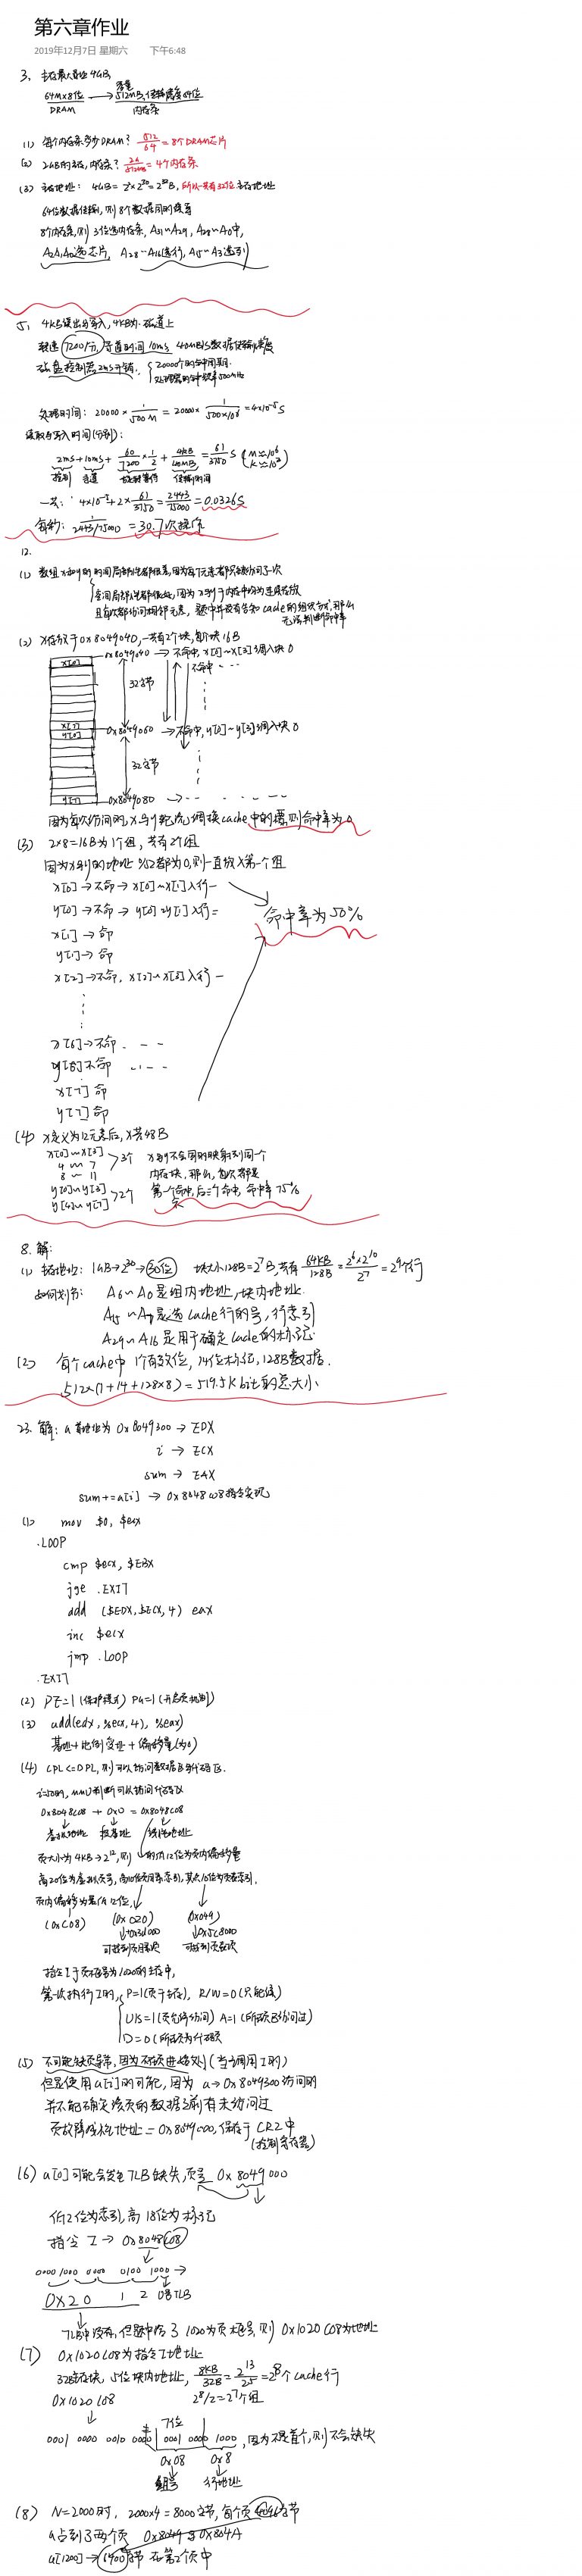 第六章作业
2019年12月7日 星期六 下午6:48
3. 主存最大容量 4GB,
64M×8位 → 容量 512MB, 传输宽度 64位
DRAM 内存条
(1) 每个内存条多少DRAM? 512/64 = 8个DRAM芯片
(2) 2GB的主存, 内存条? 2G/512MB = 4个内存条
(3) 主存地址: 4GB = 2²×2³⁰ = 2³²B, 所以一共有32位主存地址
64位数据传输, 则8个数据同时读写
8个内存条, 则 3位选内存条, A31~A29, A28~A0中,
A2A1A0选芯片, A28~A16选行, A15~A3选列
5. 4KB读出与写入, 4KB为 磁道上
转速 7200/分, 寻道时间 10ms 40MB/s数据传输速度
磁盘控制器 2ms开销.
20000个时钟周期
处理器的时钟频率 500MHz
处理时间: 20000× 1/500M = 20000× 1/(500×10⁶) = 4×10⁻⁵ S
读取与写入时间(分别):
2ms + 10ms + 60/7200 × 1/2 + 4KB/40MB = 61/3750 S (M≈10⁶ K≈10³)
控制 寻道 旋转等待 传输时间
一共: 4×10⁻⁵ + 2× 61/3750 = 2443/75000 = 0.0326S
每秒: 1/(2443/75000) = 30.7次操作
12.
(1) 数组x和y的时间局部性都很差, 因为每个元素都只被访问了一次
空间局部性都很好, 因为x与y于内存中均为连续存放
且每次都访问相邻元素, 题中并没有告知cache的组织方式, 那么
无法判断命中率
(2) x存放于0x8049040, 一共有2个块, 每个块16B
x[0] 0x8049040 → 不命中, x[0]~x[3]调入块0
不命中
32字节
x[7]
y[0] 0x8049060 → 不命中, y[0]~y[3]调入块0
32字节
y[7] 0x8049080
因为每次访问时, x与y轮流调换cache中的块, 则命中率为0
(3) 2×8=16B为1个组, 共有2个组
因为x与y的地址 %2都为0, 则一直放入第一个组
x[0] → 不命 → x[0]~x[1]入行一
y[0] → 不命 → y[0]~y[1]入行二
x[1] → 命
y[1] → 命
x[2] → 不命, x[2]~x[3]入行一
命中率为50%
x[6] → 不命
y[6] 不命
x[7] 命
y[7] 命
(4) x定义为12元素后, x共48B
x[0]~x[3]
4 ~ 7 3个
8 ~ 11
y[0]~y[3]
y[4]~y[7] 2个
x与y不会同时映射到同一个
内存块, 那么, 每次都是
第一个不命中, 后三个命中, 命中率75%
8. 解:
(1) 主存地址: 1GB → 2³⁰ → 30位 块大小128B = 2⁷B, 共有 64KB/128B = 2⁶×2¹⁰/2⁷ = 2⁹个行
如何划分: A6~A0是组内地址, 块内地址.
A15~A7是选cache行的号, 行索引
A29~A16是用于确定cache的标记.
(2) 每个cache中 1个有效位, 14位标记, 128B数据.
512×(1+14+128×8) = 519.5K bit的总大小
23. 解: a 首地址为 0x8049300 → EDX
i → ECX
sum → EAX
sum+=a[i] → 0x8048c08指令实现
(1) mov $0, $ecx
.LOOP
cmp $ecx, $EBX
jge .EXIT
add ($EDX, $ECX, 4) eax
inc $ecx
jmp .LOOP
.EXIT
(2) PE=1 (保护模式) PG=1 (开启页机制)
(3) add(edx, %ecx, 4), %eax)
基址+比例变址+偏移量(为0)
(4) CPL<=DPL, 则可以访问数据段与代码段.
i=50时, MMU判断可以访问代码段
0x8048c08 + 0x0 = 0x8048c08
虚拟地址 段基址 线性地址
页大小为 4KB → 2¹², 则 时的12位为页内偏移量
高20位为虚拟页号, 高10位页目录索引, 其次10位为页表索引.
页内偏移为最低12位,
(0xC08) (0x020) (0x048)
可找到页目录项 可找到页表项
指令I于页框号为1020的主存中,
第一次执行I时, P=1(页于主存), R/W=0(只能读)
U/S=1(页允许访问) A=1 (所在页已访问过)
D=0 (所在页为代码页)
(5) 不可能缺页异常, 因为不在页边缘处 (当调用I时)
但是使用a[i]时可能, 因为 a→0x8049300 访问时
并不能确定该页的数据之前有未访问过
页故障线性地址 = 0x8049000, 保存于 CR2中
(控制寄存器)
(6) a[0]可能会发生TLB缺失, 页号 0x8049000
低2位为索引, 高18位为标记
指令I → 0x8048c08
0000 1000 0000 0100 1000 →
0x20 1 2 0组TLB
TLB中没有, 但题中给了1020为页框号, 则 0x1020C08为地址
(7) 0x1020C08为指令I地址
32B主存块, 5位块内地址, 8KB/32B = 2¹³/2⁵ = 2⁸个cache行
0x1020C08 2⁸/2=2⁷个组
7位
0001 0000 0010 0000 0001 0000 1000, 因为不是首个, 则不会缺失
0x08 0x8
组号 行地址
(8) N=2000时, 2000×4=8000字节, 每个页4096字节
a占到了两个页 0x8049与0x804A
a[1200] → 6400字节 在第2个页中